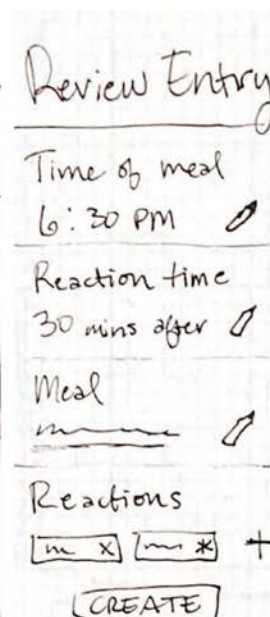 Review Entry
Time of meal
6:30 PM
Reaction time
30 mins after
Meal
Reactions
x
*
+
CREATE